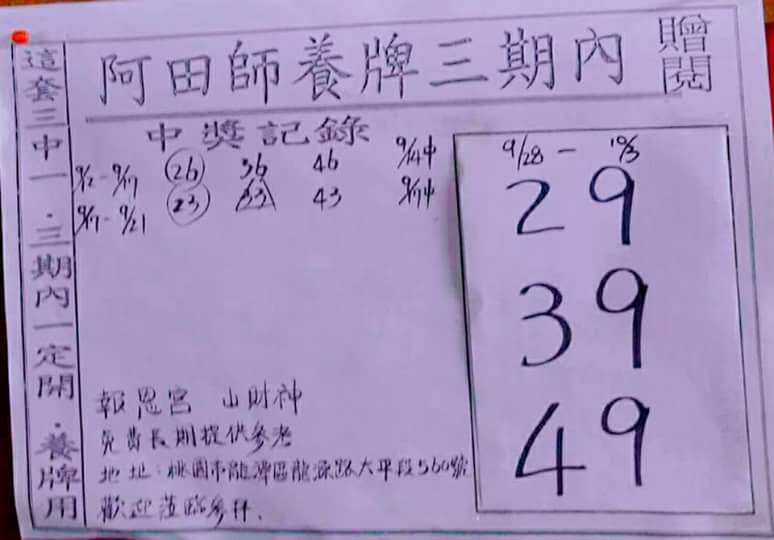 阿田師養牌三期內
贈閱
這套三中一．三期內一定開．養牌用
中獎記錄
9/2-9/17 26 36 46 9/14中
9/17-9/21 23 33 43 9/17中
9/28-10/3
29
39
49
報恩宮 山財神
免費長期提供參考
地址:桃園市龍潭區龍源路大平段560號
歡迎蒞臨參拜.